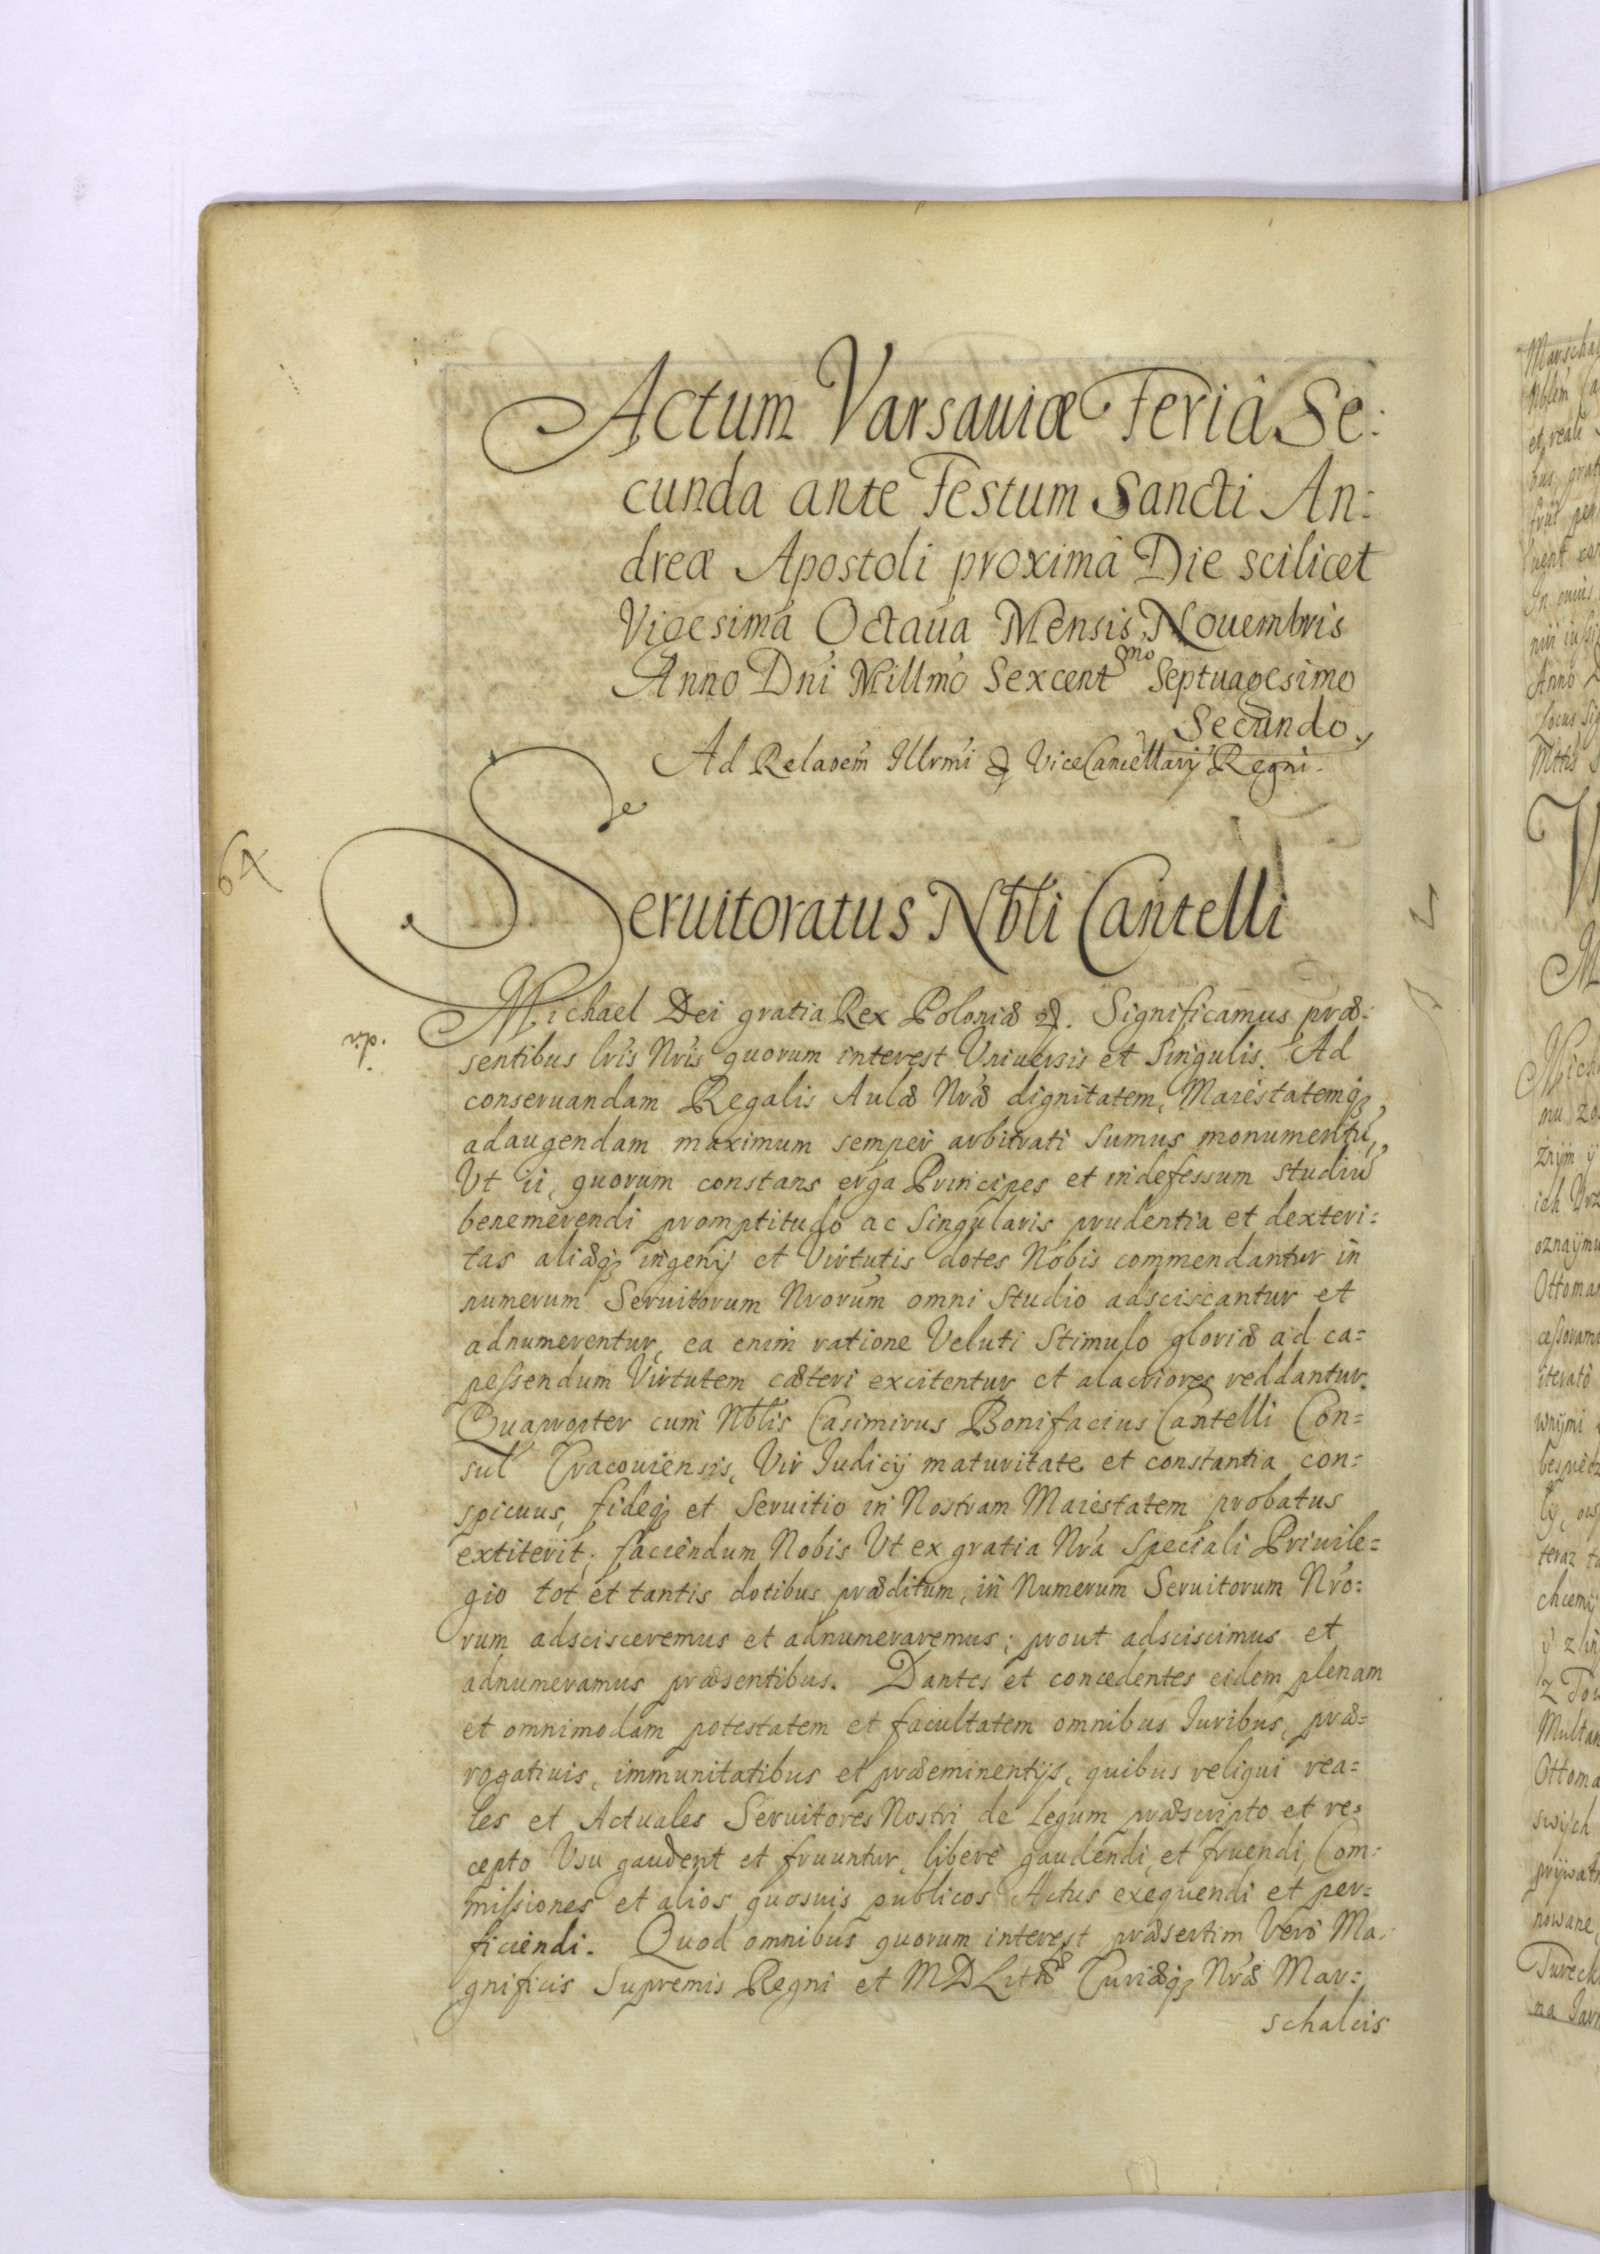 Actum Varsauiæ Feriâ Se:
cunda ante Festum Sancti An:
dreæ Apostoli proximâ Die scilicet
Vigesimâ Octaua Mensis Nouembris
Anno Dni Millmo Sexcentmo Septuagesimo
Secundo
Ad Relaoem Illrmi & ViceCancellarij Regni.
64
Seruitoratus Nbli Cantelli
r.p.
Michael Dei gratia Rex Poloniæ &. Significamus præ:
sentibus lris Nris quorum interest Uniuersis et Singulis. Ad
conseruandam Regalis Aulæ Nræ dignitatem, Maiestatemq;
adaugendam maximum semper arbitrati sumus monumentũ,
Ut ii, quorum constans erga Principes et indefessum studiũ
benemerendi promptitudo ac Singularis prudentia et dexteri:
tas aliæq; ingenij et Virtutis dotes Nobis commendantur in
numerum Seruitorum Nrorum omni studio adsciscantur et
adnumerentur, ea enim ratione Veluti Stimulo gloriæ ad ca=
peſsendum Virtutem cæteri excitentur et alacriores reddantur.
Quapropter cum Nblis Casimirus Bonifacius Cantelli Con=
sul Cracouiensis, Vir Iudicij maturitate et constantia con=
spicuus, fideq; et Seruitio in Nostram Maiestatem probatus
extiterit; faciendum Nobis Ut ex gratia Nra Speciali Priuile=
gio tot et tantis dotibus præditum, in Numerum Seruitorum Nro:
rum adscisceremus et adnumeraremus; prout adsciscimus et
adnumeramus præsentibus. Dantes et concedentes eidem plenam
et omnimodam potestatem et facultatem omnibus Iuribus, præ=
rogatiuis, immunitatibus et præeminentijs, quibus reliqui rea=
les et Actuales Seruitores Nostri de Legum præscripto et re=
cepto Usu gaudent et fruuntur, libere gaudendi, et fruendi, Com=
miſsiones et alios quosuis publicos Actus exequendi et per=
ficiendi. Quod omnibus quorum interest præsertim Vero Ma=
gnificis Supremis Regni et MDLithæ Curiæq; Nræ Mar=
schalcis